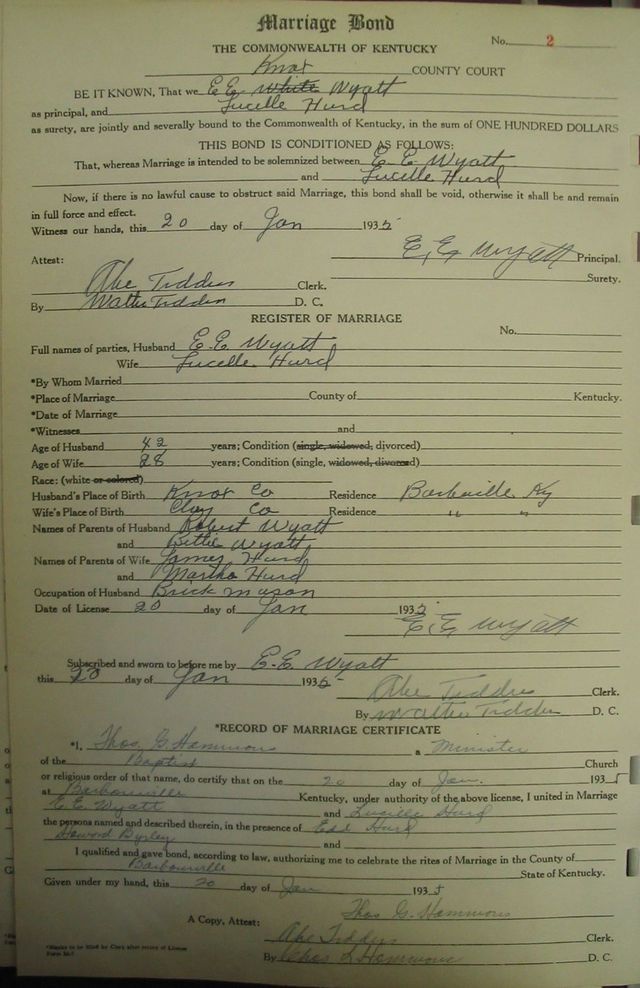 Marriage Bond
No. 2
THE COMMONWEALTH OF KENTUCKY
Knox COUNTY COURT
BE IT KNOWN, That we E E White Wyatt
as principal, and Lucille Hurd
as surety, are jointly and severally bound to the Commonwealth of Kentucky, in the sum of ONE HUNDRED DOLLARS
THIS BOND IS CONDITIONED AS FOLLOWS:
That, whereas Marriage is intended to be solemnized between E E Wyatt
and Lucelle Hurd
Now, if there is no lawful cause to obstruct said Marriage, this bond shall be void, otherwise it shall be and remain
in full force and effect.
Witness our hands, this 20 day of Jan 1935
E, E, Wyatt Principal.
Attest: Surety.
Abe Tidden Clerk.
By Walter Tidden D. C.
REGISTER OF MARRIAGE
No.
Full names of parties, Husband E. E. Wyatt
Wife Lucelle Hurd
*By Whom Married
*Place of Marriage County of Kentucky.
*Date of Marriage
*Witnesses and
Age of Husband 42 years; Condition (single, widowed, divorced)
Age of Wife 28 years; Condition (single, widowed, divorced)
Race: (white or colored)
Husband's Place of Birth Knox Co Residence Barbville Ky
Wife's Place of Birth Clay Co Residence " "
Names of Parents of Husband Robert Wyatt
and Bettie Wyatt
Names of Parents of Wife James Hurd
and Martha Hurd
Occupation of Husband Brick mason
Date of License 20 day of Jan 1935
E, E, Wyatt
Subscribed and sworn to before me by E. E. Wyatt
this 20 day of Jan 1935
Abe Tidden Clerk.
By Walter Tidden D. C.
*RECORD OF MARRIAGE CERTIFICATE
*I, Thos. G. Hammons a Minister
of the Baptist Church
or religious order of that name, do certify that on the 20 day of Jan. 1935
at Barbourville Kentucky, under authority of the above license, I united in Marriage
E. E. Wyatt and Lucille Hurd
the persons named and described therein, in the presence of Edd Hurd
Howard Byrley and
I qualified and gave bond, according to law, authorizing me to celebrate the rites of Marriage in the County of
Barbourville State of Kentucky.
Given under my hand, this 20 day of Jan 1935
Thos G. Hammons
A Copy, Attest: Abe Tidden Clerk.
By Thos G Hammons D. C.
*Blanks to be filled by Clerk after return of License